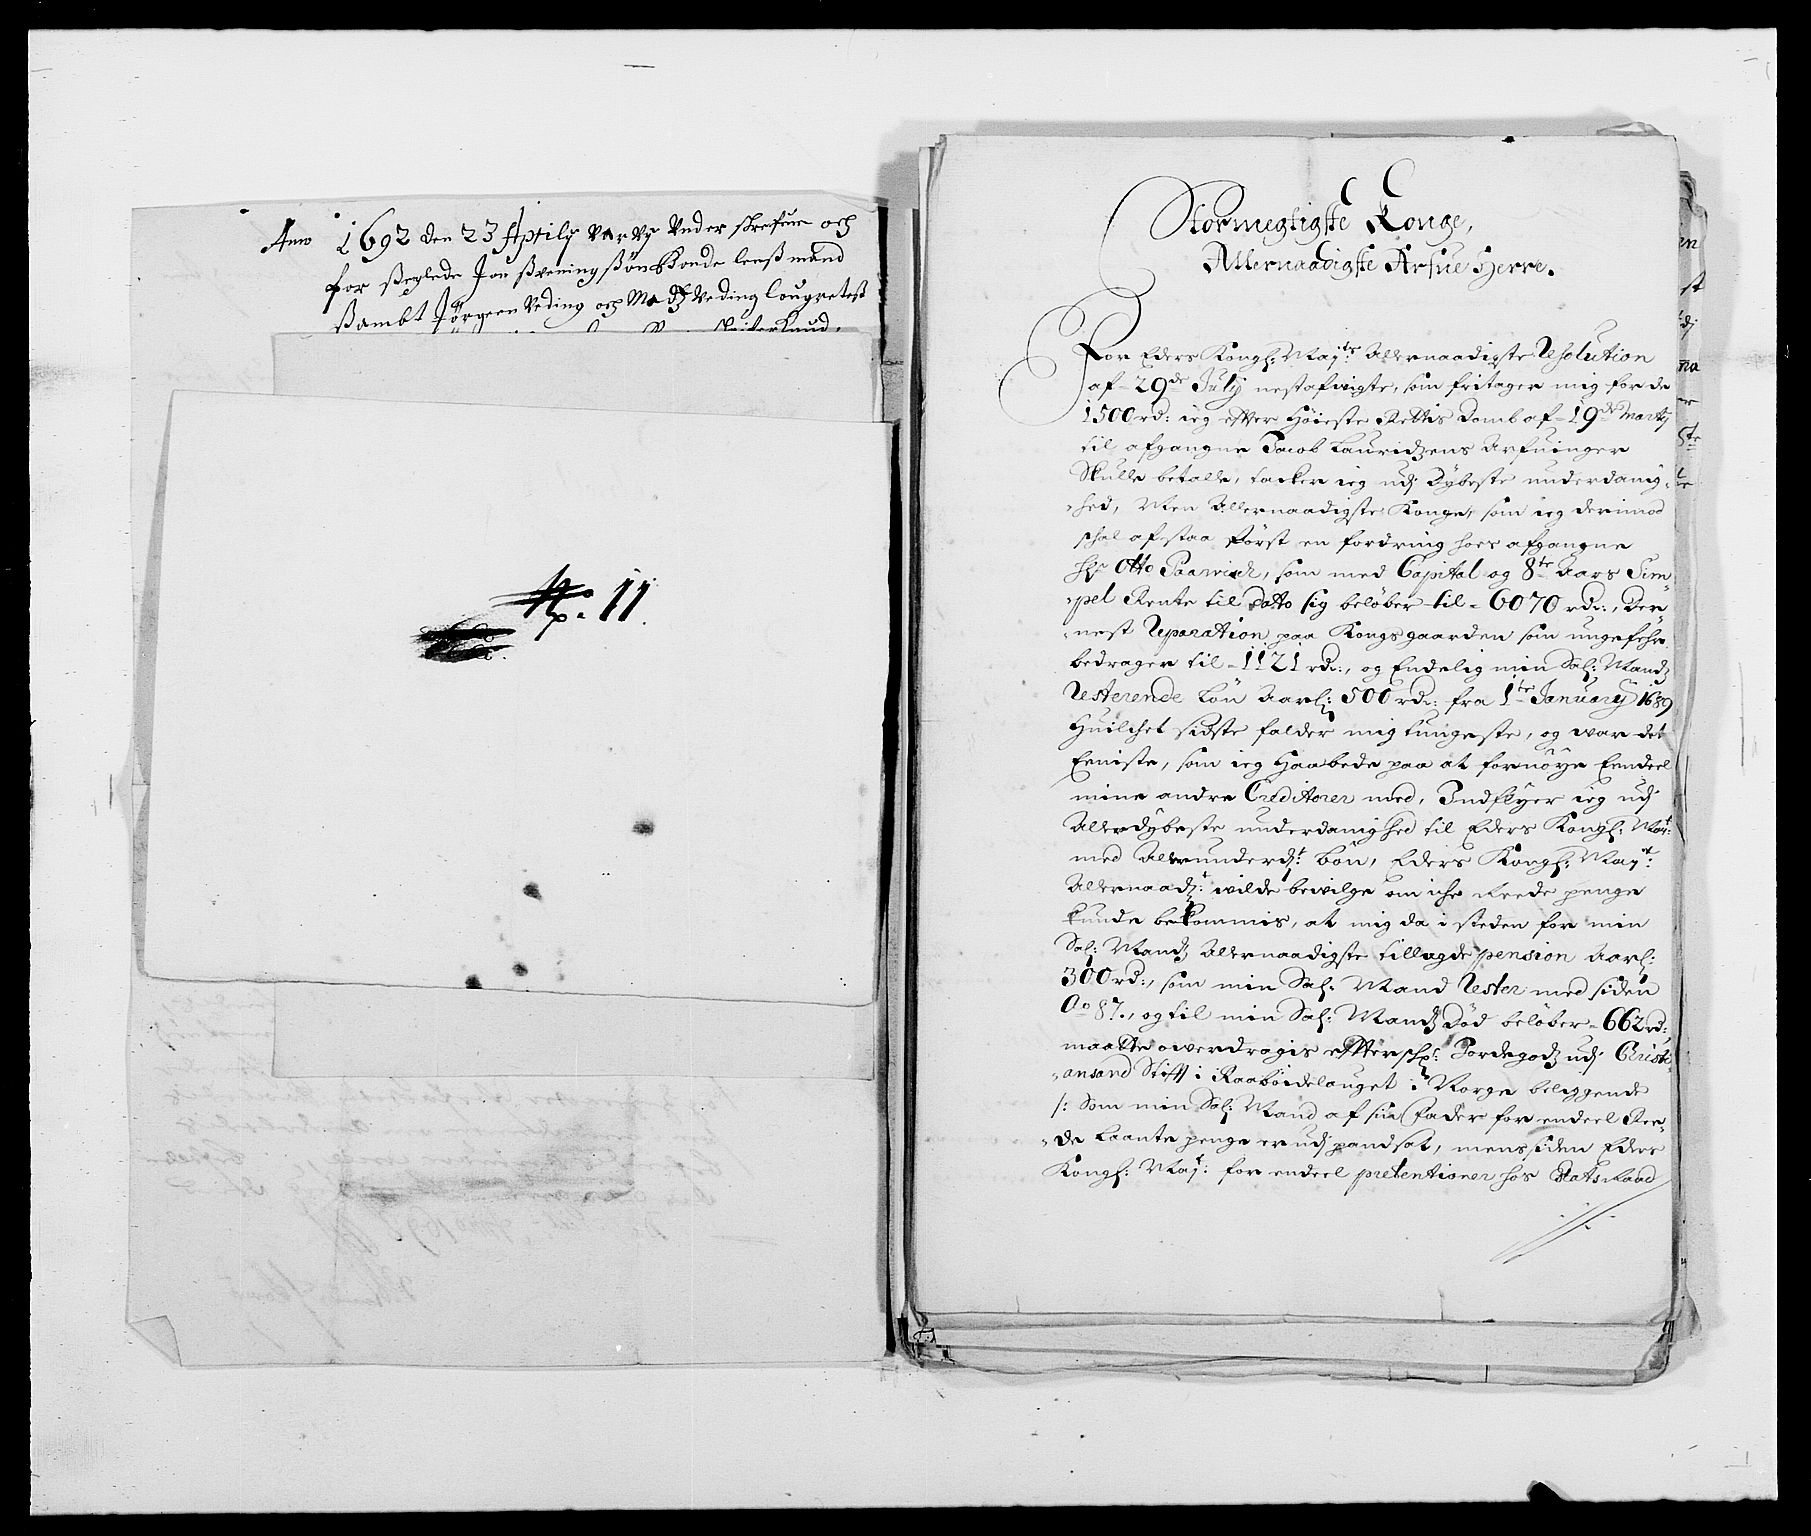 Anno 1692 den 23 Aprily var vy under skrefne och
for sseglede Jon Ssveningssøn Bonde lenssmand
ssambt Jørgen Veding och Madtz Veding lougretest
No 11
Stormegtigste Konge,
Allernaadigste Arfue Herre.
For Eders Kongl: Maytz: Allernaadigste Resolution
af 29de July nestafvigte, som fritager mig for de
1500 rd: ieg efter Høieste Rettis Domb af 19de Marty
til afgangne Jacob Lauridzens Arfuinger
Skulle betalle, tacker ieg udj Dybeste underdanig-
-hed, Men Allernaadigste Konge, som ieg derimod
schal afstaa Først en fordring hoes afgangne
Hr Otto Paarvisch, som med Capital og 8te Aars Sim-
-pel Rente til Datto sig beløber til 6070 rd:, Der-
-nest Reparation paa Kongsgaarden som ungefehr
bedrager til 1121 rd:, og Endelig min Sal: Mandz
Resterende Løn Aarl: 500 rd: fra 1te January 1689
Huilchet sidste falder mig tungeste, og war det
Eeniste, som ieg Haabede paa at fornøye Eendeel
mine andre Creditorer med, Indflyer ieg udj
Allerdybeste underdanighed til Eders Kongl: Mayt:
med Allerunderdt: bøn, Eders Kongl: Mayt:
Allernaadt: wilde bewilge om iche Reede penge
kunde bekommis, at mig da i steden for min
Sal: Mandz Allernaadigste tillagde pension Aarl:
300 rd:, som min Sal: Mand Rester med siden
Ao 87., og til min Sal: Mandz Død beløber 662 rd:,
maatte owerdragis effterschr: Jordegodz udj Christi-
-ansand Stifft i Raabøidelauget i Norge beliggende
/: Som min Sal: Mand af sin Fader for endeel Ree-
-de Laante penge er udj pandsat, mens siden Eders
Kongl: Mayt: for endeel pretentioner hos Etats Raad